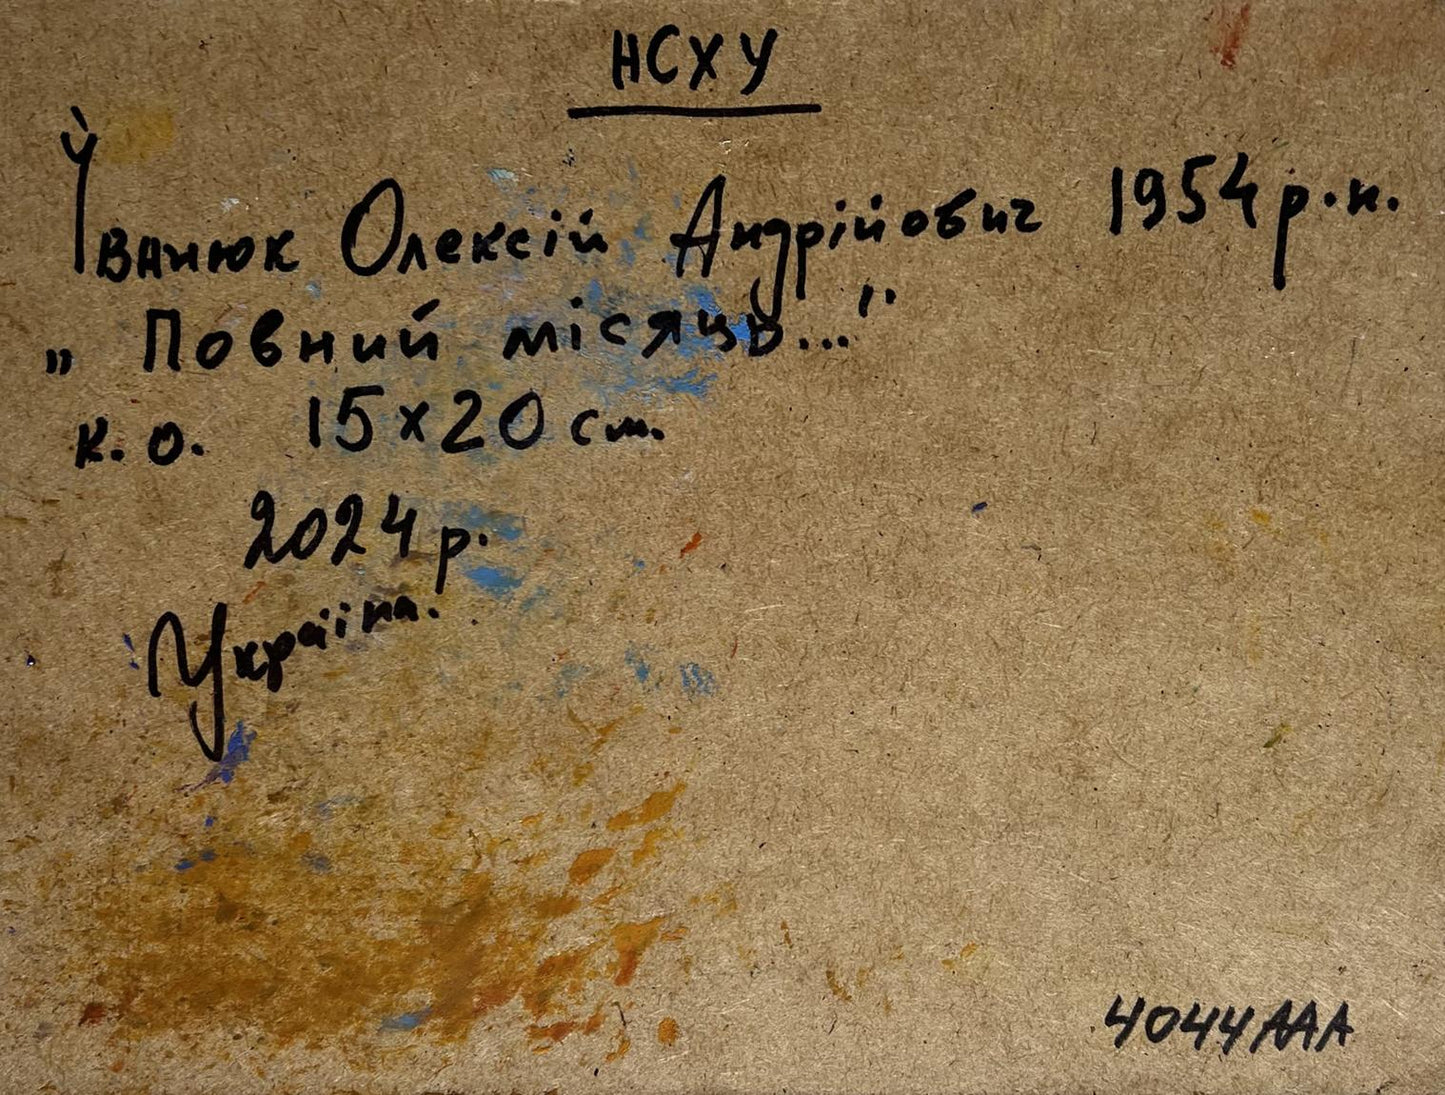 НСХУ
Іванюк Олексій Андрійович 1954 р.н.
„ Повний місяць..."
к. о. 15х20 см.
2024 р.
Україна.
4044ААА